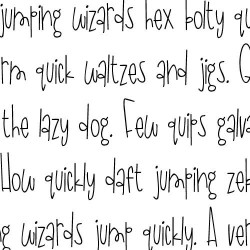 jumping wizards hex bolty qu
rm quick waltzes and jigs. G
the lazy dog. Few quips galv
How quickly daft jumping zeb
g wizards jump quickly. A ver